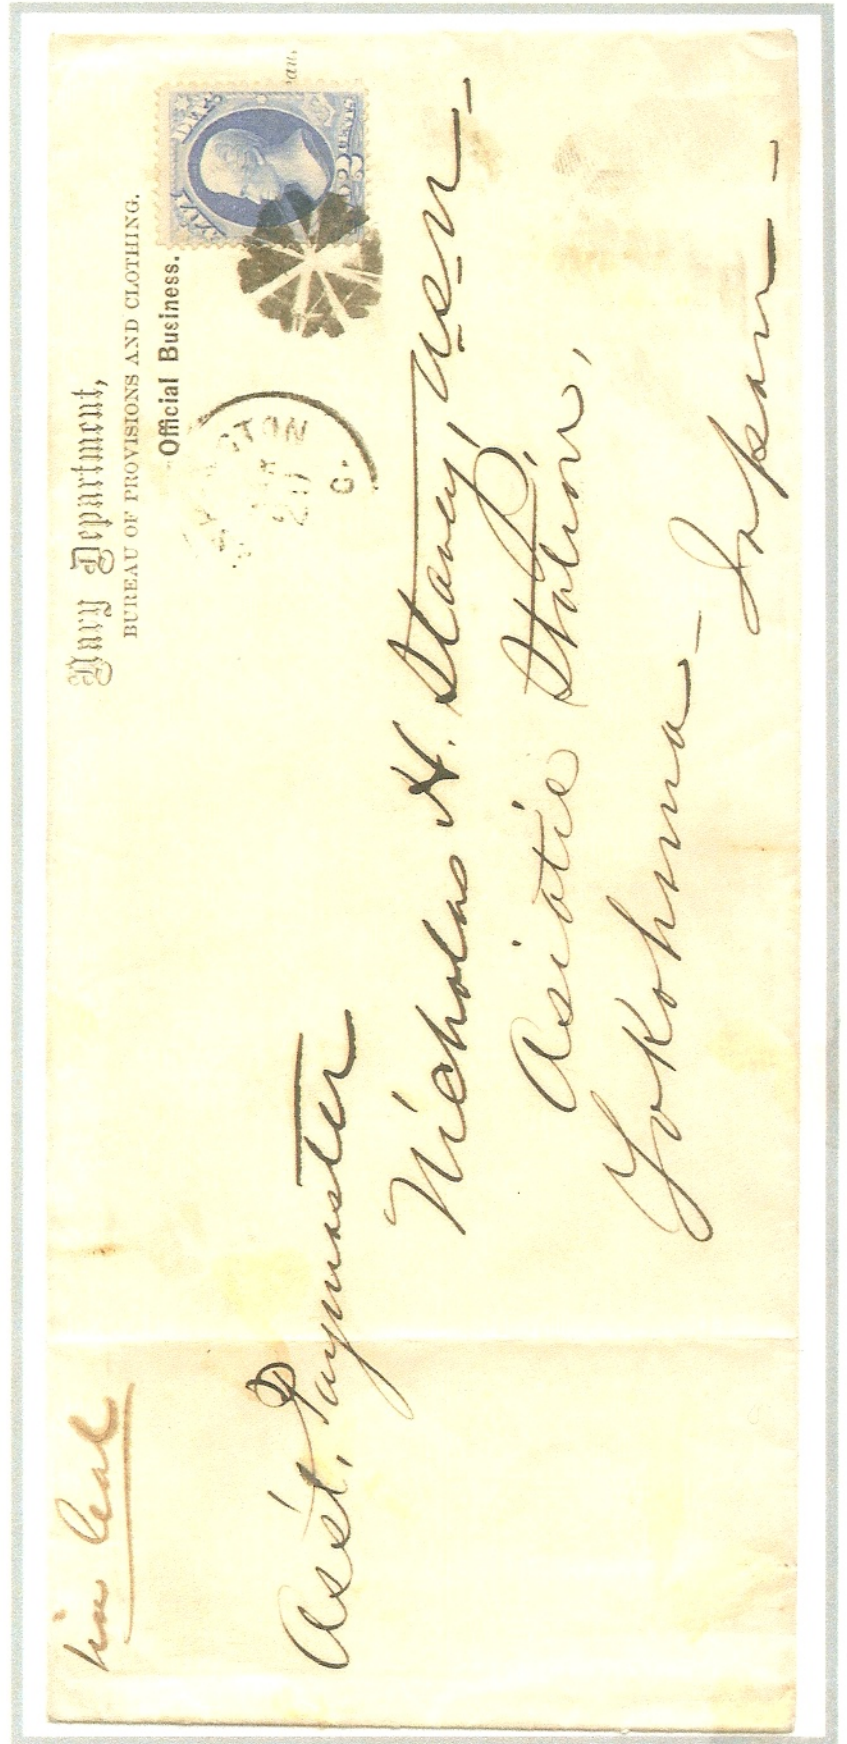 via Cal
Navy Department,
BUREAU OF PROVISIONS AND CLOTHING.
Official Business.
eau.
TON
20
C.
Ass't. Paymaster
Nicholas H. Stavey, U.S.N.
Asiatic Station,
Yokohama - Japan -